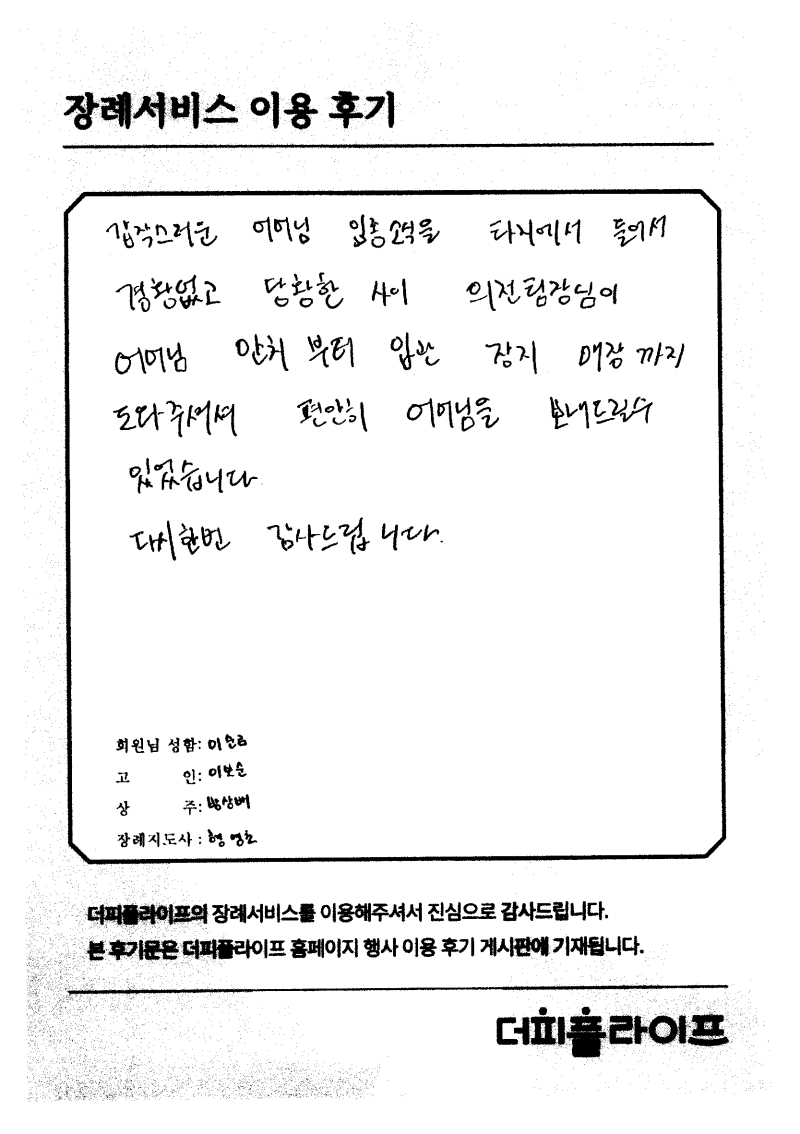 장례서비스 이용 후기
갑작스러운 어머님 임종소식을 타지에서 들어서
경황없고 당황한 사이 의전팀장님이
어머님 안치 부터 입관 장지 매장 까지
도와주셔셔 편안히 어머님을 보내드릴수
있었습니다
다시한번 감사드립니다.
회원님 성함:
고 인: 이보순
상 주:
장례지도사 :
더피플라이프의 장례서비스를 이용해주셔서 진심으로 감사드립니다.
본 후기문은 더피플라이프 홈페이지 행사 이용 후기 게시판에 기재됩니다.
더피플라이프